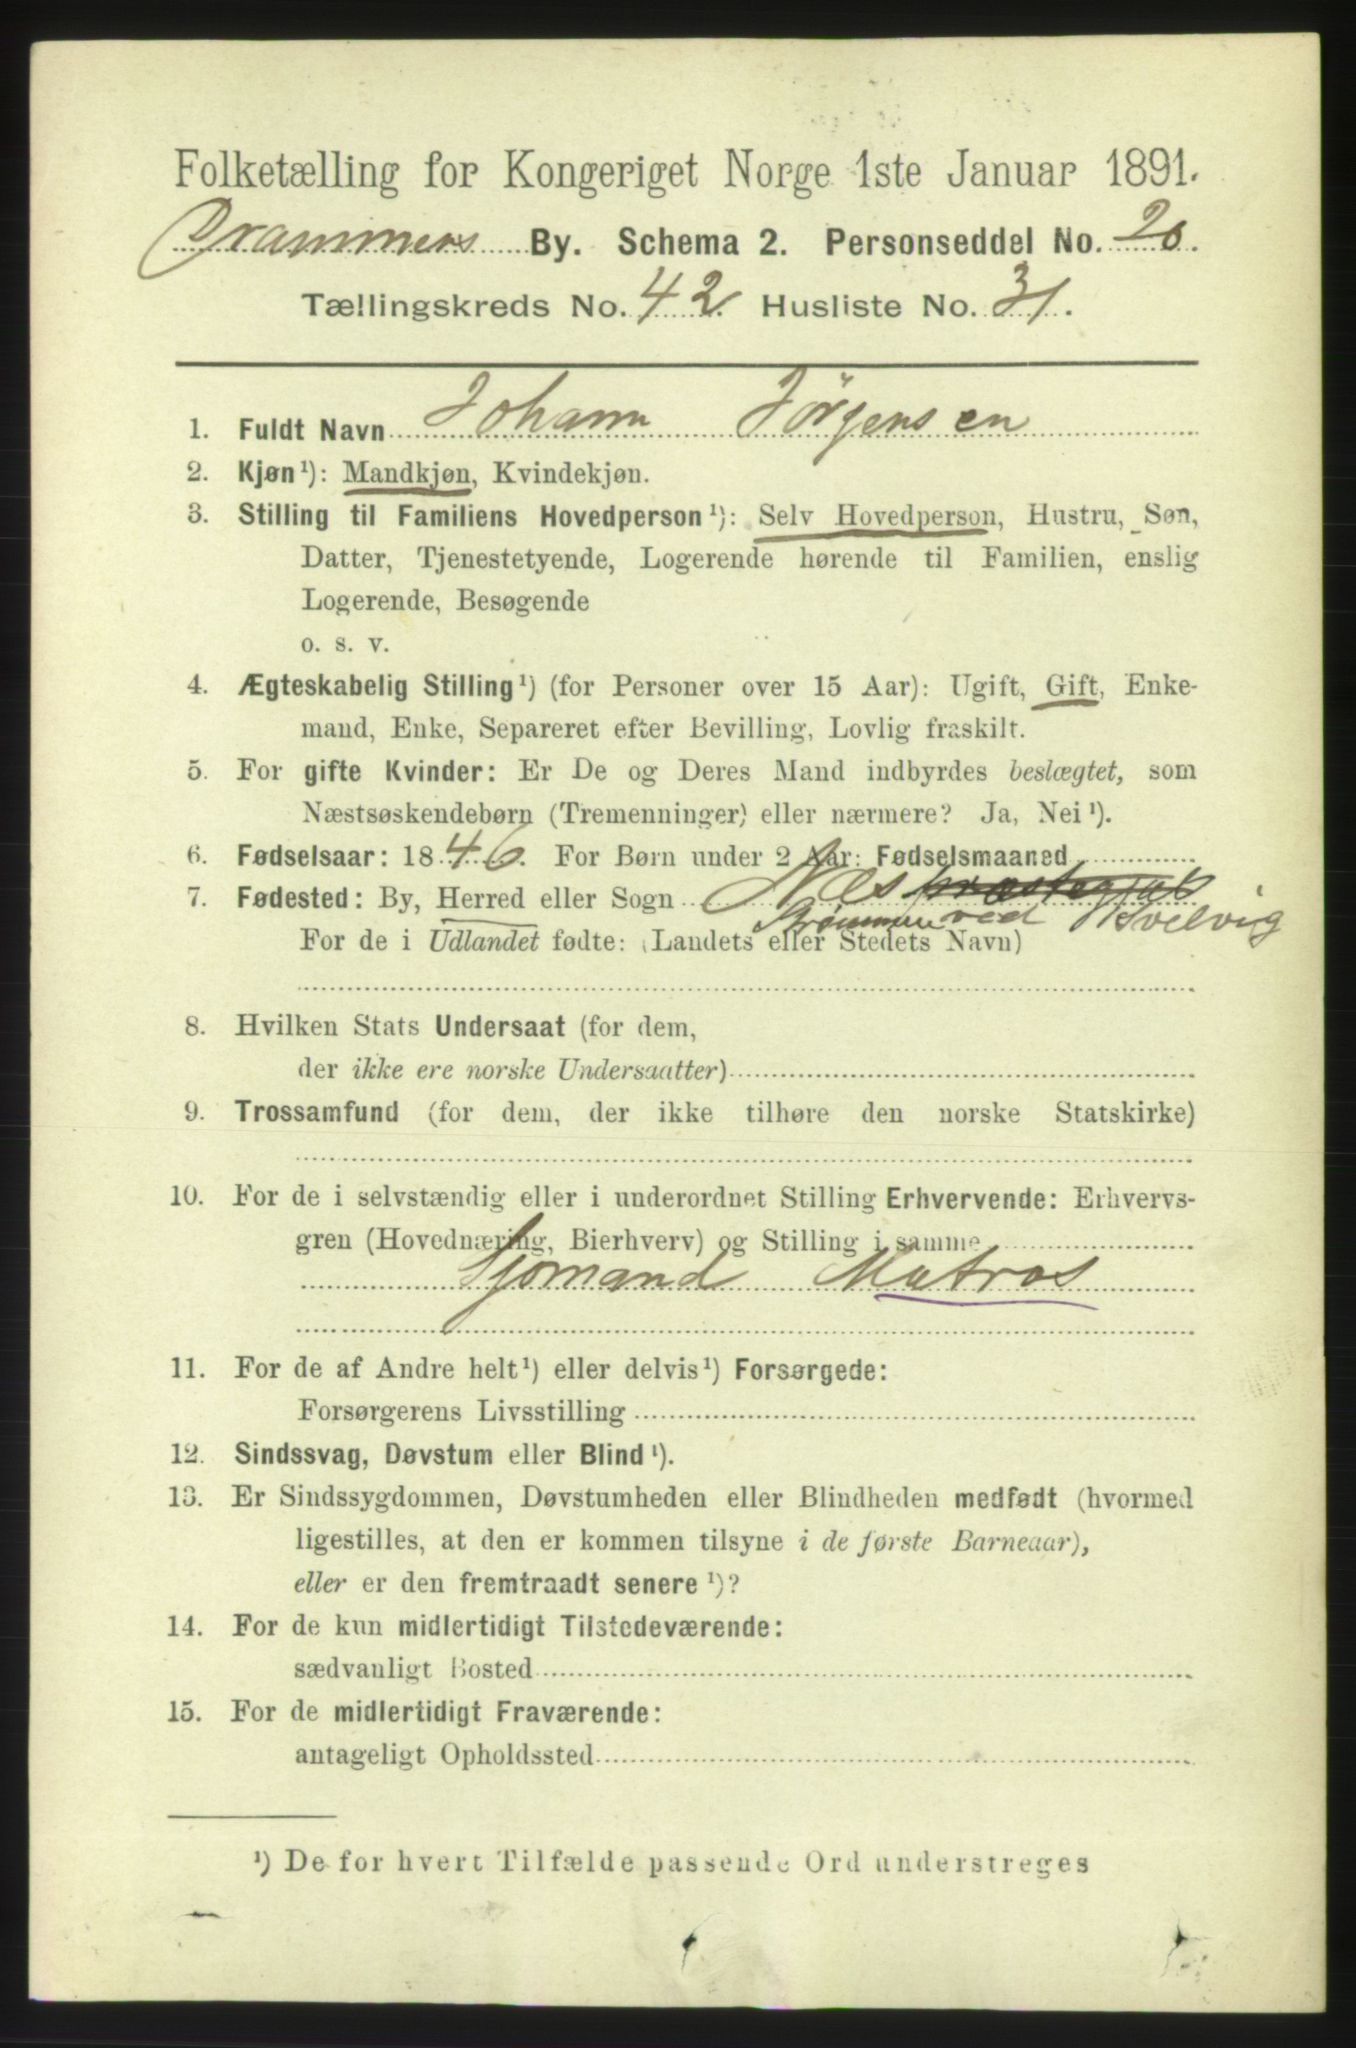 Folketælling for Kongeriget Norge 1ste Januar 1891.
Drammens By. Schema 2. Personseddel No. 20.
Tællingskreds No. 42 Husliste No. 31.
1. Fuldt Navn Johann Jörgensen
2. Kjøn¹): Mandkjøn, Kvindekjøn.
3. Stilling til Familiens Hovedperson¹): Selv Hovedperson, Hustru, Søn,
Datter, Tjenestetyende, Logerende hørende til Familien, enslig
Logerende, Besøgende
o. s. v.
4. Ægteskabelig Stilling¹) (for Personer over 15 Aar): Ugift, Gift, Enke-
mand, Enke, Separeret efter Bevilling, Lovlig fraskilt.
5. For gifte Kvinder: Er De og Deres Mand indbyrdes beslægtet, som
Næstsøskendebørn (Tremenninger) eller nærmere? Ja, Nei¹).
6. Fødselsaar: 1846. For Børn under 2 Aar: Fødselsmaaned
7. Fødested: By, Herred eller Sogn Næs præstegjæld
Strømmen ved Svelvig
For de i Udlandet fødte: (Landets eller Stedets Navn)
8. Hvilken Stats Undersaat (for dem,
der ikke ere norske Undersaatter)
9. Trossamfund (for dem, der ikke tilhøre den norske Statskirke)
10. For de i selvstændig eller i underordnet Stilling Erhvervende: Erhvervs-
gren (Hovednæring, Bierhverv) og Stilling i samme
Sjömand Matros
11. For de af Andre helt¹) eller delvis¹) Forsørgede:
Forsørgerens Livsstilling
12. Sindssvag, Døvstum eller Blind¹).
13. Er Sindssygdommen, Døvstumheden eller Blindheden medfødt (hvormed
ligestilles, at den er kommen tilsyne i de første Barneaar),
eller er den fremtraadt senere¹)?
14. For de kun midlertidigt Tilstedeværende:
sædvanligt Bosted
15. For de midlertidigt Fraværende:
antageligt Opholdssted
¹) De for hvert Tilfælde passende Ord understreges